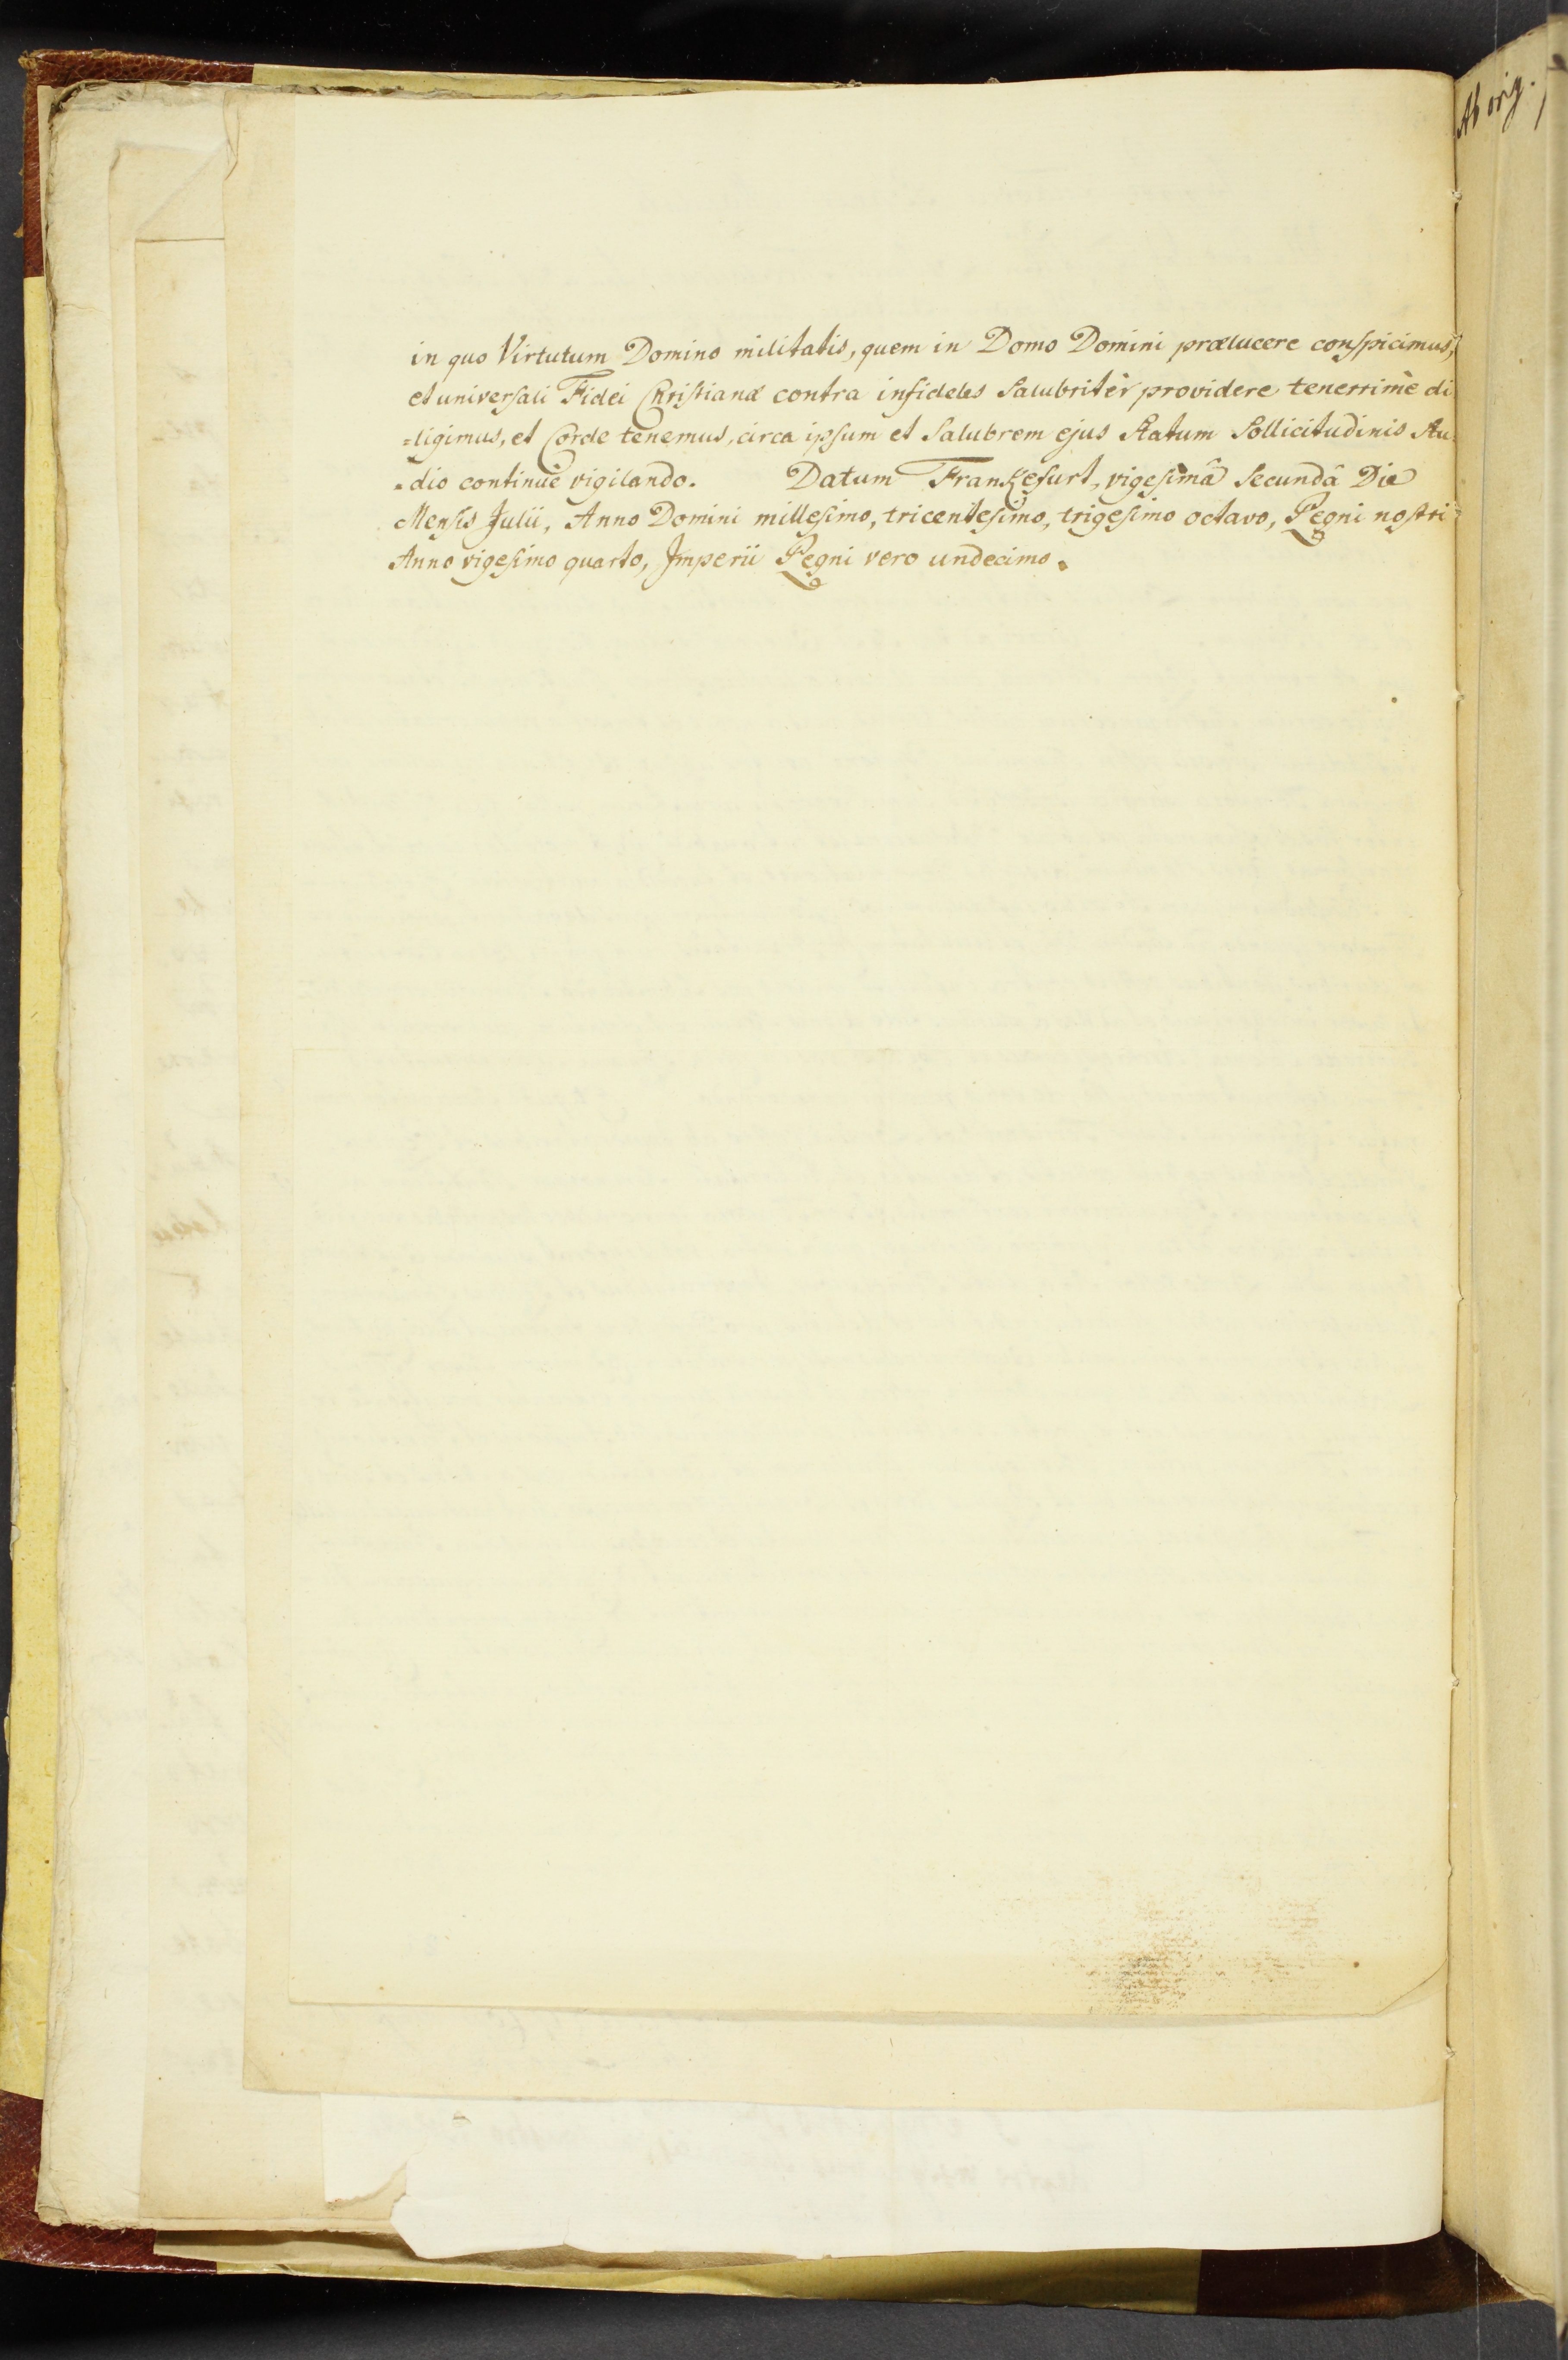 in quo Virtutum Domino militatis, quem in Domo Domini prælucere conspicimus,
et universali Fidei Christianæ contra infideles Salubritèr providere tenerrimè di
=ligimus, et Corde tenemus, circa ipsum et Salubrem ejus Statum Sollicitudinis Stu
=dio continuè vigilando. Datum Frankefurt, vigesimâ Secundâ Die
Mensis Julii, Anno Domini millesimo, tricentesimo, trigesimo octavo, Regni nostri
Anno vigesimo quarto, Imperii Regni vero undecimo.
Ab orig.